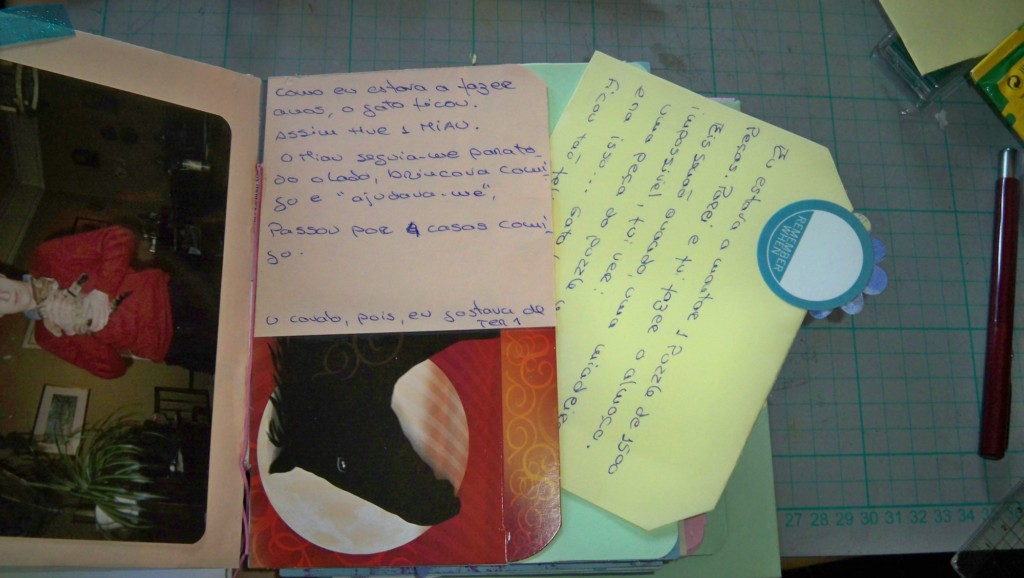 Como eu estava a fazer
anos, o gato ficou.
Assim tive 1 MIAU.
O Miau seguia-me para to-
do o lado, brincava comi-
go e "ajudava-me",
Passou por 4 casas comi-
go.
O cavalo, pois, eu gostava de
TER 1
Eu estava a montar 1 Puzzle de 1500
Peças. Parei e fui fazer o almoço.
Eis senão quando, uma
impossível, fui ver:
uma peça do puzzle
era isso... Gato
ficou tão
REMEMBER
WHEN
27 28 29 30 31 32 33 34